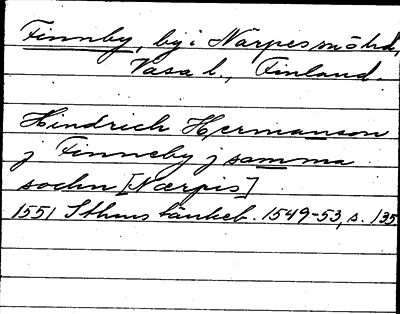 Finnby, by i Närpes snöhd,
Vasa l., Finland.
Hindrich Hermanson
j Finneby j samma
sochn [Nærpis]
1551 Sthms tänkeb. 1549-53, s. 135